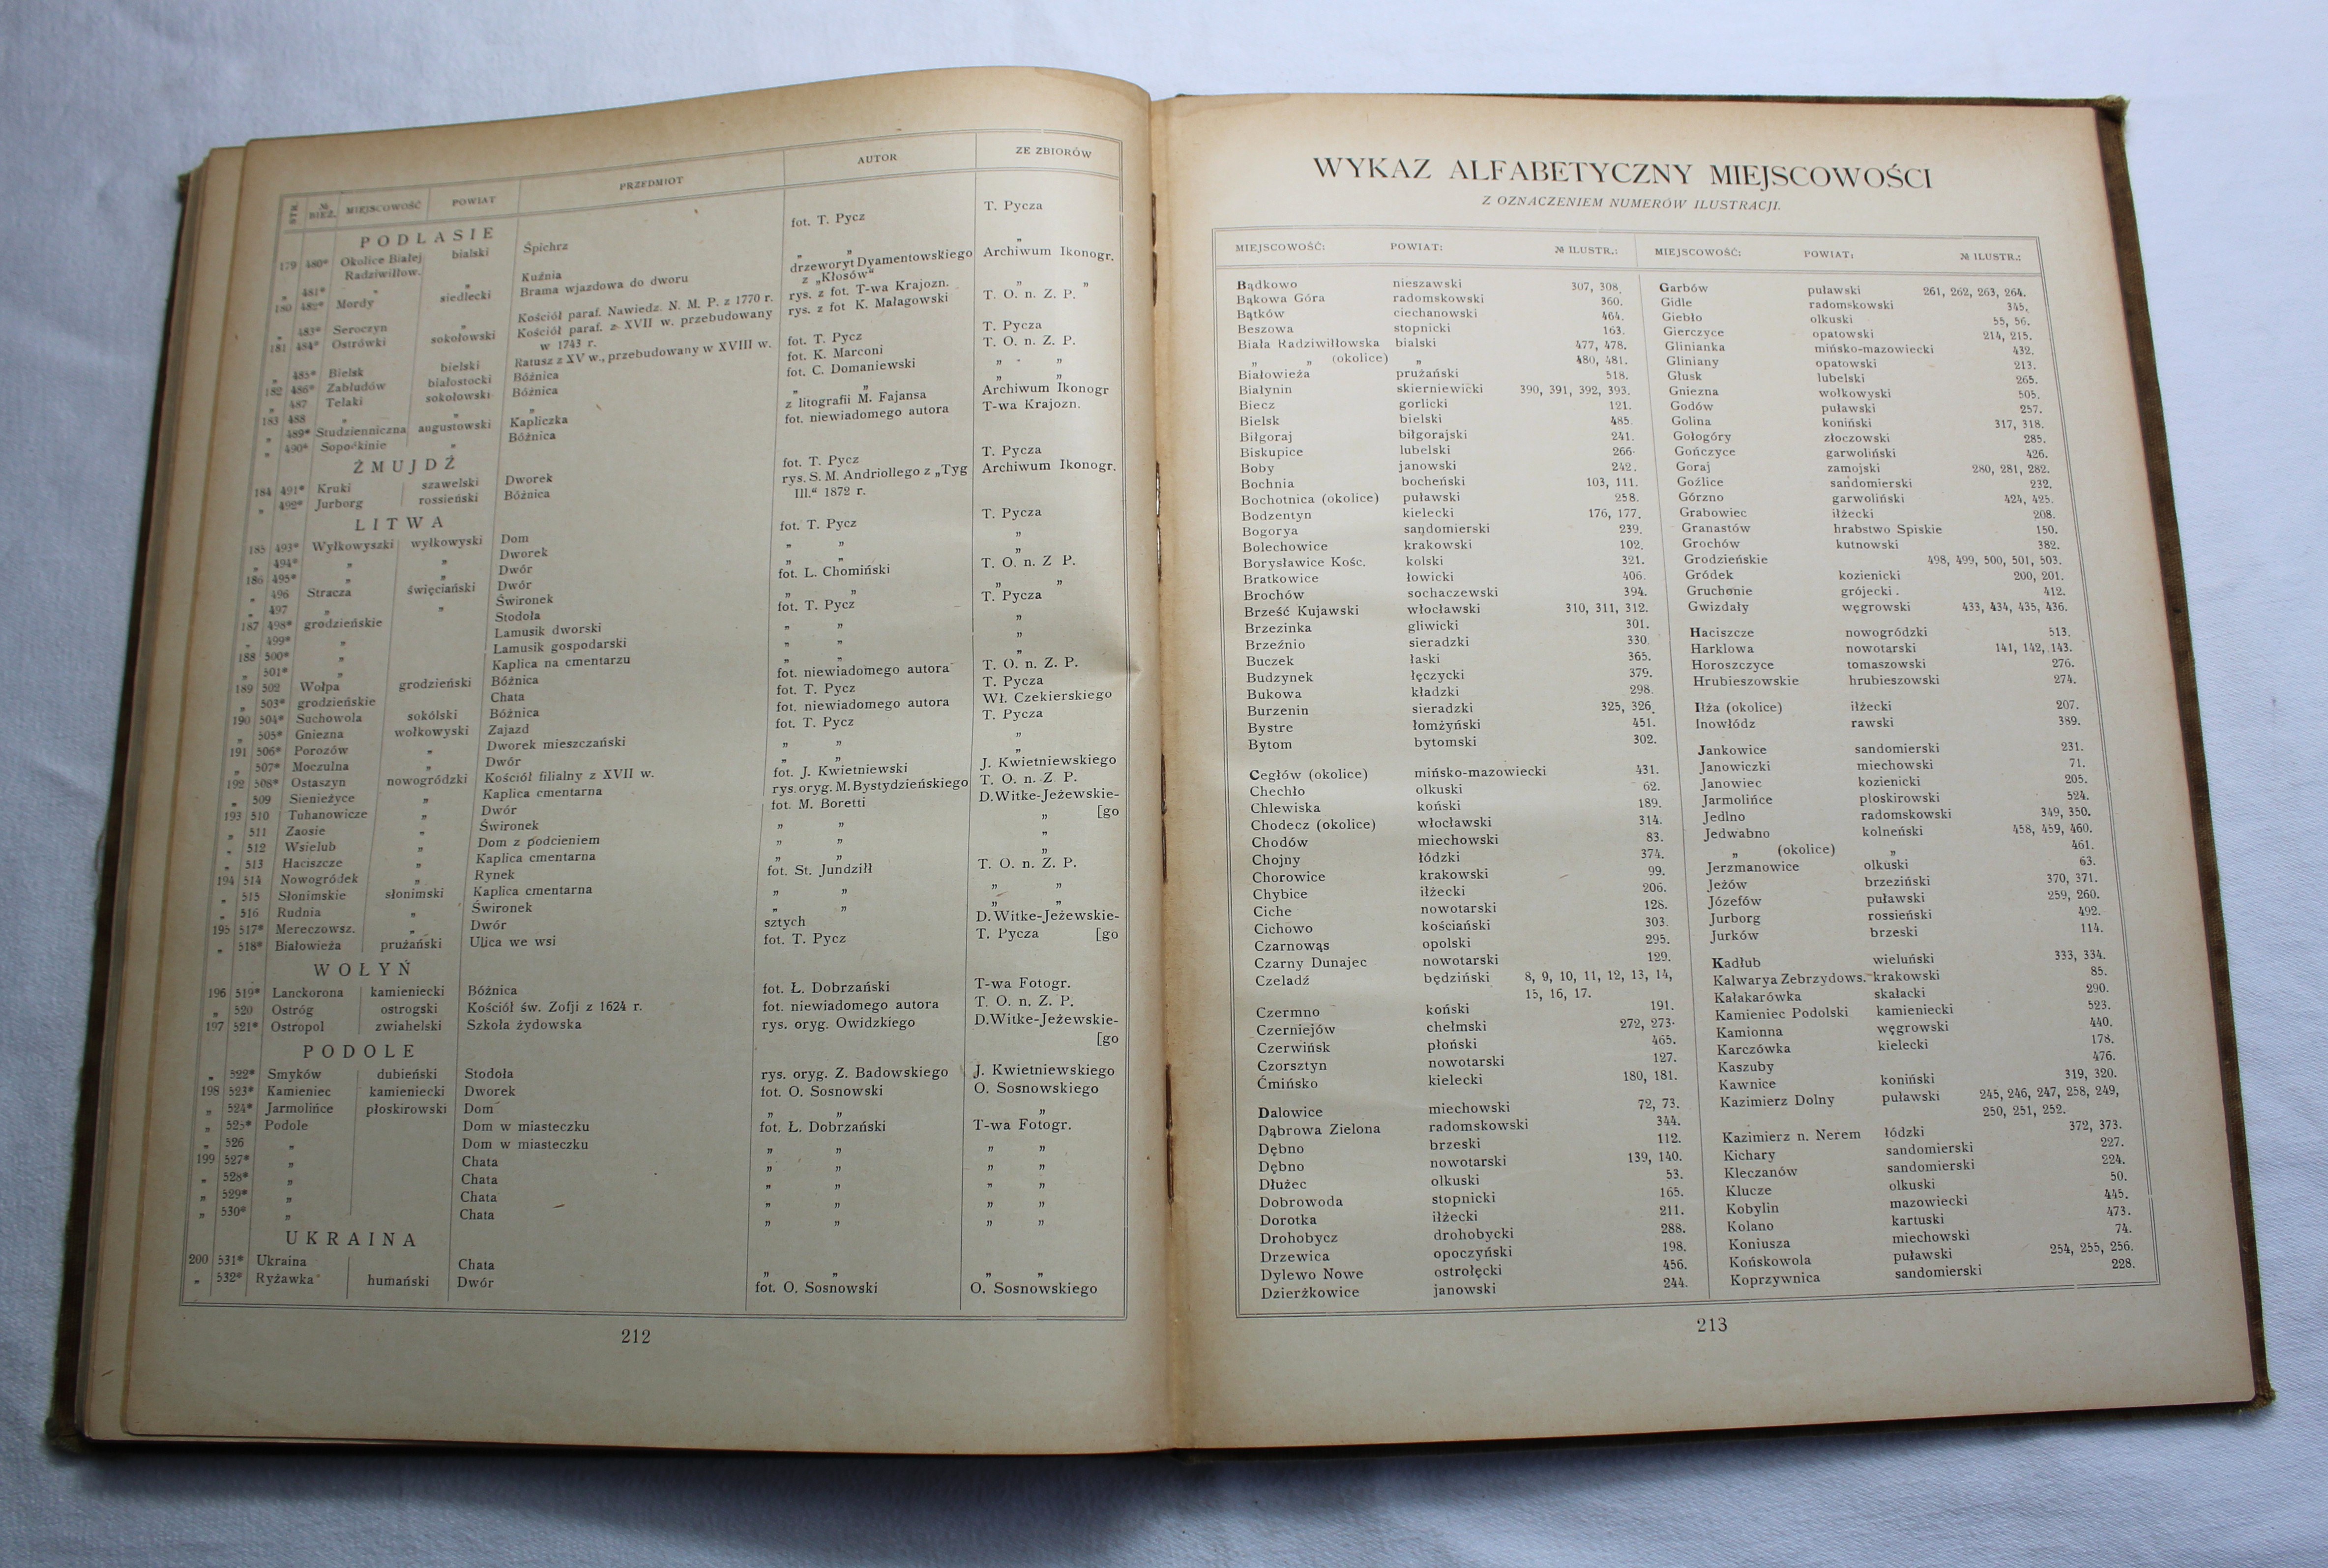 STR. № BIEŻ. MIEJSCOWOŚĆ POWIAT PRZEDMIOT AUTOR ZE ZBIORÓW
PODLASIE
179 480* Okolice Białej bialski Śpichrz fot. T. Pycz T. Pycza
Radziwiłłow.
„ 481* „ „ Kuźnia „ „ „
180 482* Mordy siedlecki Brama wjazdowa do dworu drzeworyt Dyamentowskiego Archiwum Ikonogr.
z „Kłosów“
„ 483* Seroczyn „ Kościół paraf. Nawiedz. N. M. P. z 1770 r. rys. z fot. T-wa Krajozn. „ „
181 484* Ostrówki sokołowski Kościół paraf. z XVII w. przebudowany rys. z fot K. Małagowski T. O. n. Z. P.
w 1743 r.
„ 485* Bielsk bielski Ratusz z XV w., przebudowany w XVIII w. fot. T. Pycz T. Pycza
182 486* Zabłudów białostocki Bóżnica fot. K. Marconi T. O. n. Z. P.
„ 487 Telaki sokołowski Bóżnica fot. C. Domaniewski „ „
183 488 „ „ „ „ „ „ „
„ 489* Studzienniczna augustowski Kapliczka z litografii M. Fajansa Archiwum Ikonogr
„ 490* Sopoćkinie „ Bóżnica fot. niewiadomego autora T-wa Krajozn.
ŻMUJDŹ
184 491* Kruki szawelski Dworek fot. T. Pycz T. Pycza
„ 492* Jurborg rossieński Bóżnica rys. S. M. Andriollego z „Tyg Archiwum Ikonogr.
Ill.“ 1872 r.
LITWA
185 493* Wyłkowyszki wyłkowyski Dom fot. T. Pycz T. Pycza
„ 494* „ „ Dworek „ „ „
186 495* „ „ Dwór „ „ „
„ 496 Stracza święciański Dwór fot. L. Chomiński T. O. n. Z P.
„ 497 „ „ Świronek „ „ „ „
187 498* grodzieńskie Stodoła fot. T. Pycz T. Pycza
„ 499* „ Lamusik dworski „ „ „
188 500* „ Lamusik gospodarski „ „ „
„ 501* „ Kaplica na cmentarzu „ „ „
189 502 Wołpa grodzieński Bóżnica fot. niewiadomego autora T. O. n. Z. P.
„ 503* grodzieńskie Chata fot. T. Pycz T. Pycza
190 504* Suchowola sokólski Bóżnica fot. niewiadomego autora Wł. Czekierskiego
„ 505* Gniezna wołkowyski Zajazd fot. T. Pycz T. Pycza
191 506* Porozów „ Dworek mieszczański „ „ „
„ 507* Moczulna „ Dwór „ „ „
192 508* Ostaszyn nowogródzki Kościół filialny z XVII w. fot. J. Kwietniewski J. Kwietniewskiego
„ 509 Sienieżyce „ Kaplica cmentarna rys. oryg. M. Bystydzieńskiego T. O. n. Z P.
193 510 Tuhanowicze „ Dwór fot. M. Boretti D.Witke-Jeżewskie-
[go
„ 511 Zaosie „ Świronek „ „ „
„ 512 Wsielub „ Dom z podcieniem „ „ „
„ 513 Haciszcze „ Kaplica cmentarna „ „ „
194 514 Nowogródek „ Rynek fot. St. Jundziłł T. O. n. Z. P.
„ 515 Słonimskie słonimski Kaplica cmentarna „ „ „ „
„ 516 Rudnia „ Świronek „ „ „ „
195 517* Mereczowsz. „ Dwór sztych D.Witke-Jeżewskie-
„ 518* Białowieża prużański Ulica we wsi fot. T. Pycz T. Pycza [go
WOŁYŃ
196 519* Lanckorona kamieniecki Bóżnica fot. Ł. Dobrzański T-wa Fotogr.
„ 520 Ostróg ostrogski Kościół św. Zofji z 1624 r. fot. niewiadomego autora T. O. n. Z. P.
197 521* Ostropol zwiahelski Szkoła żydowska rys. oryg. Owidzkiego D.Witke-Jeżewskie-
[go
PODOLE
„ 522* Smyków dubieński Stodoła rys. oryg. Z. Badowskiego J. Kwietniewskiego
198 523* Kamieniec kamieniecki Dworek fot. O. Sosnowski O. Sosnowskiego
„ 524* Jarmolińce płoskirowski Dom „ „ „
„ 525* Podole Dom w miasteczku fot. Ł. Dobrzański T-wa Fotogr.
„ 526 „ Dom w miasteczku „ „ „ „
199 527* „ Chata „ „ „ „
„ 528* „ Chata „ „ „ „
„ 529* „ Chata „ „ „ „
„ 530* „ Chata „ „ „ „
UKRAINA
200 531* Ukraina Chata „ „ „ „
„ 532* Ryżawka humański Dwór fot. O. Sosnowski O. Sosnowskiego
212
WYKAZ ALFABETYCZNY MIEJSCOWOŚCI
Z OZNACZENIEM NUMERÓW ILUSTRACJI.
MIEJSCOWOŚĆ: POWIAT: № ILUSTR.:
Bądkowo nieszawski 307, 308.
Bąkowa Góra radomskowski 360.
Bątków ciechanowski 464.
Beszowa stopnicki 163.
Biała Radziwiłłowska bialski 477, 478.
„ „ (okolice) „ 480, 481.
Białowieża prużański 518.
Białynin skierniewicki 390, 391, 392, 393.
Biecz gorlicki 121.
Bielsk bielski 485.
Biłgoraj biłgorajski 241.
Biskupice lubelski 266.
Boby janowski 242.
Bochnia bocheński 103, 111.
Bochotnica (okolice) puławski 258.
Bodzentyn kielecki 176, 177.
Bogorya sandomierski 239.
Bolechowice krakowski 102.
Borysławice Kośc. kolski 321.
Bratkowice łowicki 406.
Brochów sochaczewski 394.
Brześć Kujawski włocławski 310, 311, 312.
Brzezinka gliwicki 301.
Brzeźnio sieradzki 330.
Buczek łaski 365.
Budzynek łęczycki 379.
Bukowa kładzki 298.
Burzenin sieradzki 325, 326.
Bystre łomżyński 451.
Bytom bytomski 302.
Cegłów (okolice) mińsko-mazowiecki 431.
Chechło olkuski 62.
Chlewiska koński 189.
Chodecz (okolice) włocławski 314.
Chodów miechowski 83.
Chojny łódzki 374.
Chorowice krakowski 99.
Chybice iłżecki 206.
Ciche nowotarski 128.
Cichowo kościański 303.
Czarnowąs opolski 295.
Czarny Dunajec nowotarski 129.
Czeladź będziński 8, 9, 10, 11, 12, 13, 14,
15, 16, 17.
Czermno koński 191.
Czerniejów chełmski 272, 273.
Czerwińsk płoński 465.
Czorsztyn nowotarski 127.
Ćmińsko kielecki 180, 181.
Dalowice miechowski 72, 73.
Dąbrowa Zielona radomskowski 344.
Dębno brzeski 112.
Dębno nowotarski 139, 140.
Dłużec olkuski 53.
Dobrowoda stopnicki 165.
Dorotka iłżecki 211.
Drohobycz drohobycki 288.
Drzewica opoczyński 198.
Dylewo Nowe ostrołęcki 456.
Dzierżkowice janowski 244.
MIEJSCOWOŚĆ: POWIAT: № ILUSTR.:
Garbów puławski 261, 262, 263, 264.
Gidle radomskowski 345.
Giebło olkuski 55, 56.
Gierczyce opatowski 214, 215.
Glinianka mińsko-mazowiecki 432.
Gliniany opatowski 213.
Głusk lubelski 265.
Gniezna wołkowyski 505.
Godów puławski 257.
Golina koniński 317, 318.
Gołogóry złoczowski 285.
Gończyce garwoliński 426.
Goraj zamojski 280, 281, 282.
Goźlice sandomierski 232.
Górzno garwoliński 424, 425.
Grabowiec iłżecki 208.
Granastów hrabstwo Spiskie 150.
Grochów kutnowski 382.
Grodzieńskie 498, 499, 500, 501, 503.
Gródek kozienicki 200, 201.
Gruchonie grójecki. 412.
Gwizdały węgrowski 433, 434, 435, 436.
Haciszcze nowogródzki 513.
Harklowa nowotarski 141, 142, 143.
Horoszczyce tomaszowski 276.
Hrubieszowskie hrubieszowski 274.
Iłża (okolice) iłżecki 207.
Inowłódz rawski 389.
Jankowice sandomierski 231.
Janowiczki miechowski 71.
Janowiec kozienicki 205.
Jarmolińce płoskirowski 524.
Jedlno radomskowski 349, 350.
Jedwabno kolneński 458, 459, 460.
„ (okolice) „ 461.
Jerzmanowice olkuski 63.
Jeżów brzeziński 370, 371.
Józefów puławski 259, 260.
Jurborg rossieński 492.
Jurków brzeski 114.
Kadłub wieluński 333, 334.
Kalwarya Zebrzydows. krakowski 85.
Kałakarówka skałacki 290.
Kamieniec Podolski kamieniecki 523.
Kamionna węgrowski 440.
Karczówka kielecki 178.
Kaszuby 476.
Kawnice koniński 319, 320.
Kazimierz Dolny puławski 245, 246, 247, 258, 249,
250, 251, 252.
Kazimierz n. Nerem łódzki 372, 373.
Kichary sandomierski 227.
Kleczanów sandomierski 224.
Klucze olkuski 50.
Kobylin mazowiecki 445.
Kolano kartuski 473.
Koniusza miechowski 74.
Końskowola puławski 254, 255, 256.
Koprzywnica sandomierski 228.
213